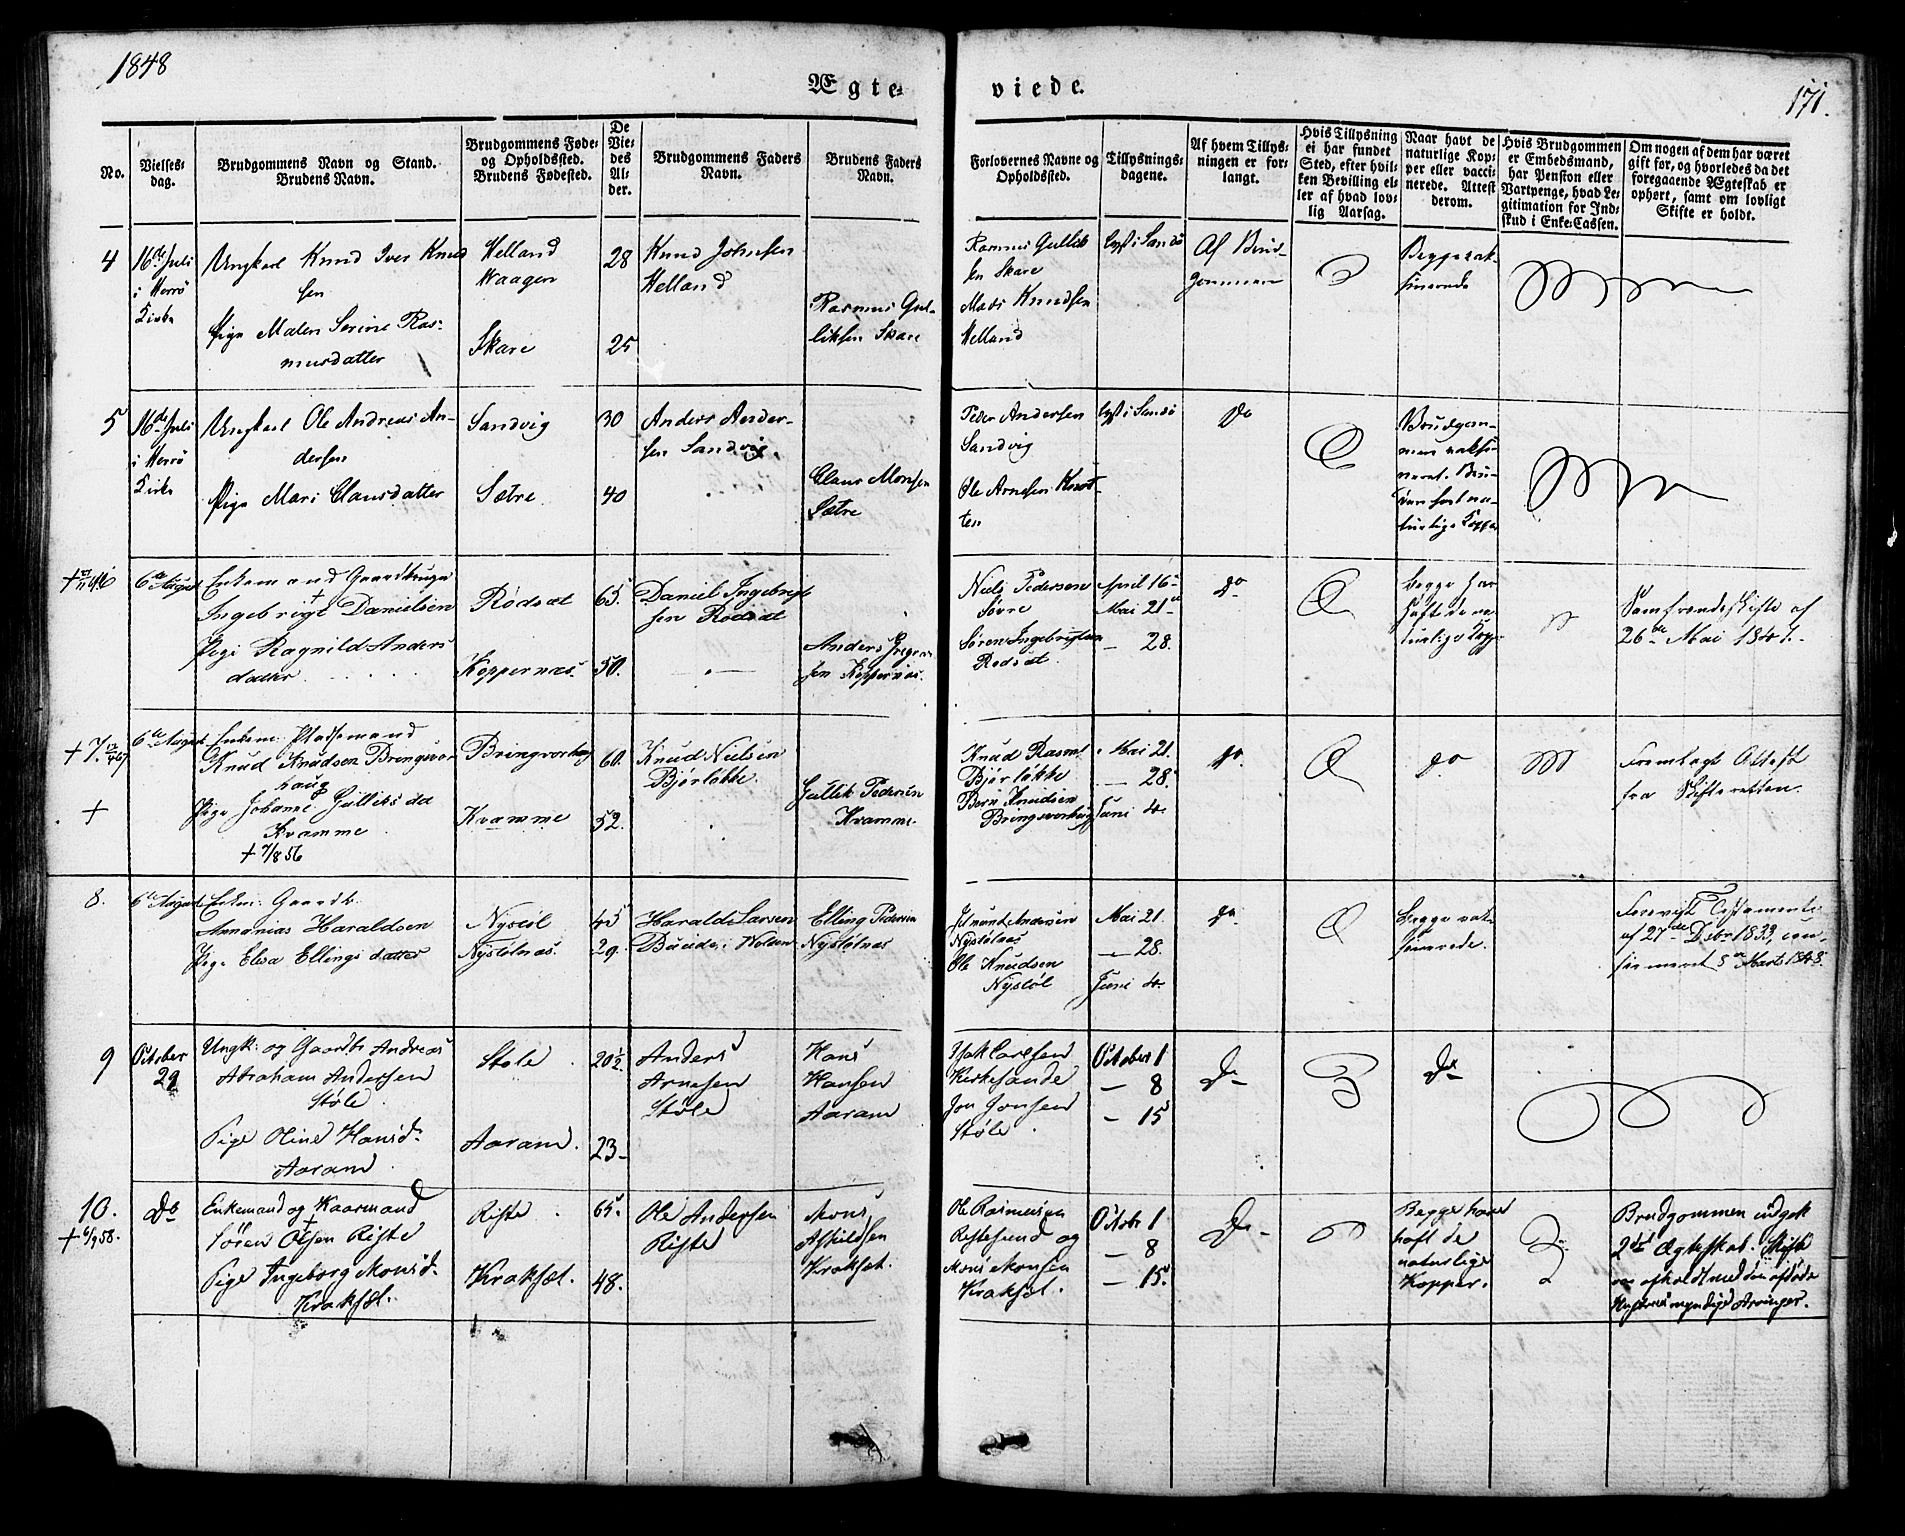 1848
Ægte=
viede.
171.
No.
Vielses-
dag.
Brudgommens Navn og Stand.
Brudens Navn.
Brudgommens Føde-
og Opholdssted.
Brudens Fødested.
De
Vie-
des
Al-
der.
Brudgommens Faders
Navn.
Brudens Faders
Navn.
Forlovernes Navne og
Opholdssted.
Tillysnings-
dagene.
Af hvem Tillys-
ningen er for-
langt.
Hvis Tillysning
ei har fundet
Sted, efter hvil-
ken Bevilling el-
ler af hvad lov-
lig Aarsag.
Naar havt de
naturlige Kop-
per eller vacci-
nerede. Attest
derom.
Hvis Brudgommen
er Embedsmand,
har Pension eller
Vartpenge, hvad Le-
gitimation for Ind-
skud i Enke-Cassen.
Om nogen af dem har været
gift før, og hvorledes da det
foregaaende Ægteskab er
ophørt, samt om lovligt
Skifte er holdt.
4
16de Juli
i Herrö
Kirke
Ungkarl Knud Iver Knud
sen
Pige Malen Serine Ras-
musdatter
Helland
Waagen
Skare
28
25
Knud Johnsen
Helland
Rasmus Gul-
liksen Skare
Rasmus Gullik
sen Skare
Mads Knudsen
Helland
lyst i Sandö
Af Brud-
gommen
Begge vak-
sinerede
5
16de Juli
i Herrö
Kirke
Ungkarl Ole Andreas An-
dersen
Pige Mari Clausdatter
Sandvig
Sætre
30
40
Anders Ander-
sen Sandvig.
Claus Monsen
Sætre
Peder Andersen
Sandvig
Ole Arnesen
lyst i Sandö
do
Brudgom-
men vaksi-
neret. Bru-
den havt na-
turlige Kopper
6
6te August
Enkemand Gaardbruger
Ingebrigt Danielsen
Pige Ragnild Anders
datter
Rödsæt
Koppernæs
65.
50.
Daniel Ingebrigt
sen Rödsæt
Anders
sen Koppernæs.
Niels Pedersen
Søvre
Søren Ingebrigtsen
Rodsæt.
April 16
Mai 21
— 28.
do
begge har
haft de na-
turlige Kopp
Samfrændeskifte af
26de Mai 184
+ 7.
+
6te August
Enkem: Pladsemand
Knud Knudsen Bringsvor
haug
Pige Johanne Gulliksda
Kvamme
+ 7/8 56
Bringsvorhaug
Kvamme
60.
52.
Knud Nielsen
Bjørløkke.
Gullik Pedersen
Kvamme.
Knud Rasm
Bjørløkke
Bern Knudsen
Bringsvorhaug
Mai 21.
— 28.
Juni 4.
do
do
Fremlagt Attest
fra Skifteretten.
8.
6te August
Enkem: Gaardb.
Annanias Haraldsen
Pige Elisa Ellings datter
Nystöl
Nystölnæs.
45
29.
Harald Larsen
Elling Pedersen
Nystölnæs
Andersen
Nystölnæs
Ole Knudsen
Nystöl
Mai 21.
— 28.
Juni 4.
do
begge vak
sinerede.
Forevist Testamente
af 27de Debr 1839, con-
firmeret 5te Marts 1848.
9
October
29
Ungk: og Gaardbr Andreas
Abraham Andersen
Støle
Pige Oline Hansd.
Aaram
Stole
Aaram.
20½
23
Anders
Arnesen
Støle
Hans
Hansen
Aaram
Isak Carlsen
Kirkesande
Jon Jonsen
Støle.
October 1
— 8
— 15
Do
Do
10.
+ 6/9 58.
Do
Enkemand og Kaarmand
Sören Olsen Riste
Pige Ingeborg Monsd.
Kraksæt.
Riste
Kraksæt.
65.
48.
Ole Andersen
Riste
Mons
Askildsen
Kraksæt.
Ole Rasmussen
Ristesund og
Mons Monsen
Kraksæt.
Octobr 1
— 8
— 15.
Do
Begge have
haft de
naturlige
Kopper.
Brudgommen indgik
2det Ægteskab. Skifte
afholdt med den afdøde
Hustrues myndige Arvinger.